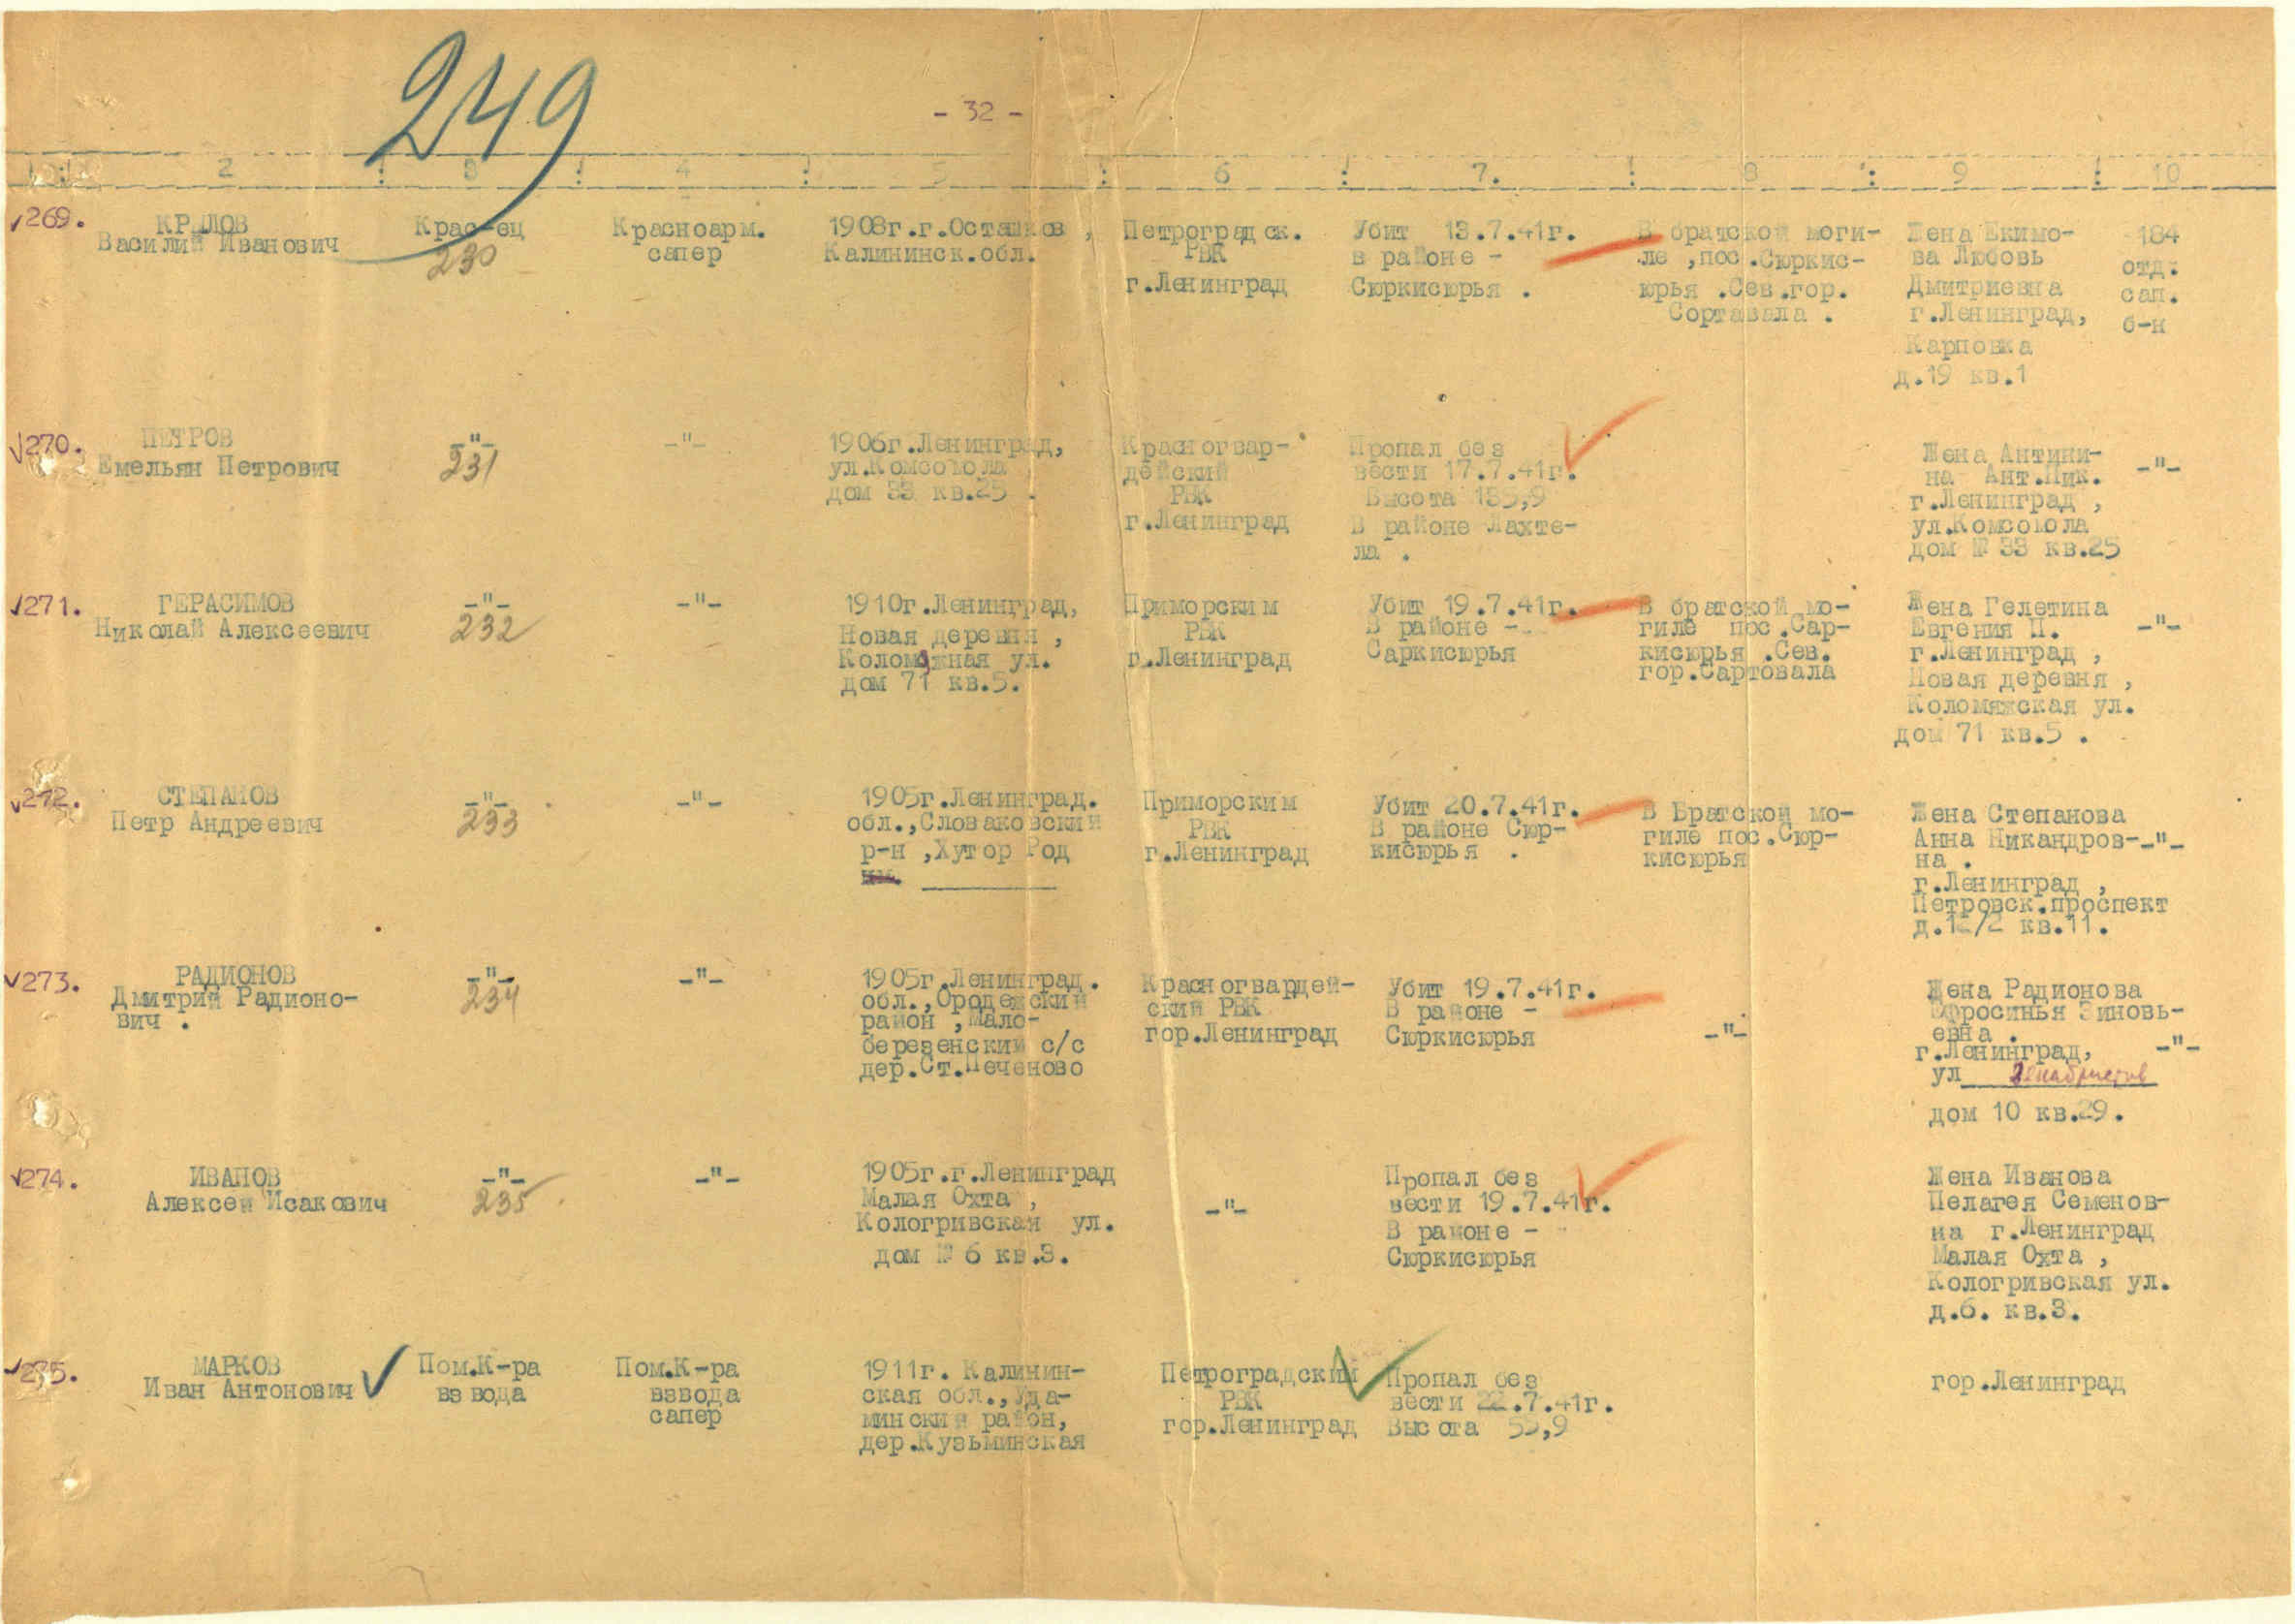 249
- 32 -
2 : 3 : 4 : 5 : 6 : 7. : 8 : 9 : 10
269.
КРЫЛОВ
Василий Иванович
Крас-ец
230
Красноарм.
сапер
1908г.г.Осташков,
Калининск.обл.
Петроградск.
РВК
г.Ленинград
Убит 13.7.41г.
в районе -
Сюркисюрья .
В братской моги-
ле ,пос.Сюркис-
юрья .Сев.гор.
Сортавала .
Жена Екимо-
ва Любовь
Дмитриевна
г.Ленинград,
Карповка
д.19 кв.1
184
отд.
сап.
б-н
270.
ПЕТРОВ
Емельян Петрович
-"-
231
-"-
1906г.Ленинград,
ул.Комсомола
дом 33 кв.25 .
Красногвар-
дейский
РВК
г.Ленинград
Пропал без
вести 17.7.41г.
Высота 155,9
В районе Лахте-
ла .
Жена Антини-
на Ант.Ник.
г.Ленинград ,
ул.Комсомола
дом № 33 кв.25
-"-
271.
ГЕРАСИМОВ
Николай Алексеевич
-"-
232
-"-
1910г.Ленинград,
Новая деревня ,
Коломяжная ул.
дом 71 кв.5.
Приморским
РВК
г.Ленинград
Убит 19.7.41г.
В районе -
Саркисюрья
В братской мо-
гиле пос.Сар-
кисюрья .Сев.
гор.Сартовала
Жена Гелетина
Евгения П.
г.Ленинград ,
Новая деревня ,
Коломяжская ул.
дом 71 кв.5 .
-"-
272.
СТЕПАНОВ
Петр Андреевич
-"-
233
-"-
1905г.Ленинград.
обл.,Словаковский
р-н ,Хутор Род
Приморским
РВК
г.Ленинград
Убит 20.7.41г.
В районе Сюр-
кисюрья .
В Братской мо-
гиле пос.Сюр-
кисюрья
Жена Степанова
Анна Никандров-
на .
г.Ленинград ,
Петровск.проспект
д.12/2 кв.11.
-"-
273.
РАДИОНОВ
Дмитрий Радионо-
вич .
-"-
234
-"-
1905г.Ленинград.
обл.,Ородежский
район ,Мало-
березенский с/с
дер.Ст.Печеново
Красногвардей-
ский РВК
гор.Ленинград
Убит 19.7.41г.
В районе -
Сюркисюрья
-"-
Жена Радионова
Ефросинья Зиновь-
евна .
г.Ленинград,
ул Декабристов
дом 10 кв.29.
-"-
274.
ИВАНОВ
Алексей Исакович
-"-
235
-"-
1905г.г.Ленинград
Малая Охта ,
Кологривская ул.
дом № 6 кв.3.
-"-
Пропал без
вести 19.7.41г.
В районе -
Сюркисюрья
Жена Иванова
Пелагея Семенов-
на г.Ленинград
Малая Охта ,
Кологривская ул.
д.6. кв.3.
275.
МАРКОВ
Иван Антонович
Пом.К-ра
взвода
Пом.К-ра
взвода
сапер
1911г. Калинин-
ская обл.,Уда-
минский район,
дер.Кузьминская
Петроградский
РВК
гор.Ленинград
Пропал без
вести 22.7.41г.
Высота 59,9
гор.Ленинград